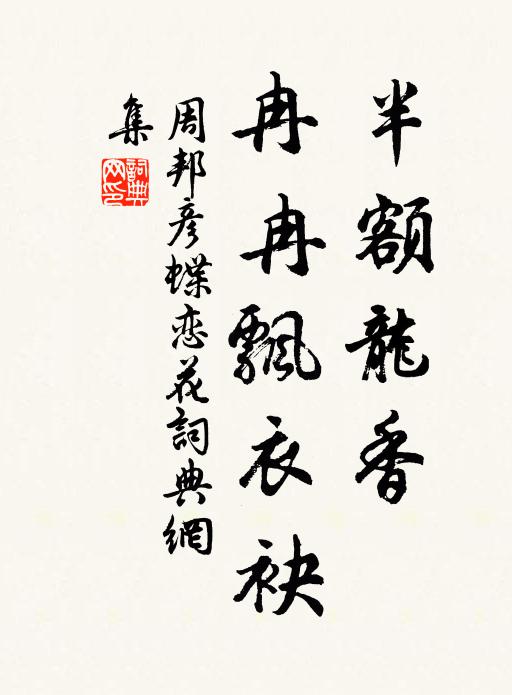 半額龍香
冉冉飄衣袂
周邦彥蝶恋花詞典網
集
詞典
网印